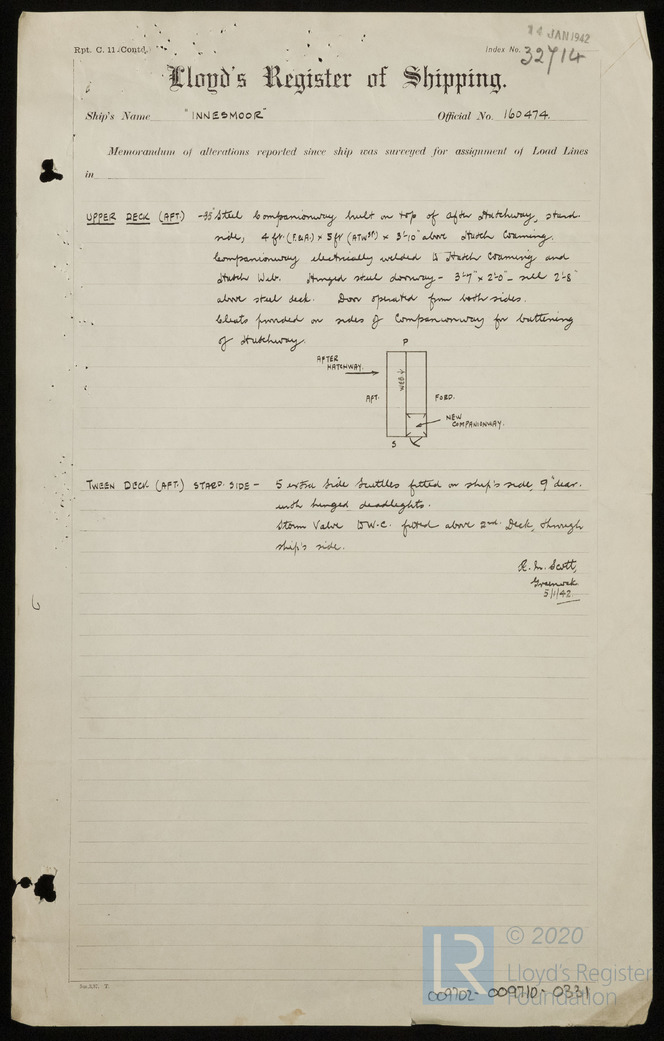 14 JAN 1942
Rpt. C. 11 (Contd.)
Index No. 32714
Lloyd's Register of Shipping.
Ship's Name "INNESMOOR"
Official No. 160474.
Memorandum of alterations reported since ship was surveyed for assignment of Load Lines
in
UPPER DECK (AFT.) - .35" Steel Companionway built on top of after Hatchway, starbd.
side, 4 ft. (F.&A.) x 5 ft (ATWSP.) x 3'-10" above Hatch Coaming.
Companionway electrically welded to Hatch Coaming and
Hatch Web. Hinged steel doorway - 3'-7" x 2'-0" - sill 2'-8"
above steel deck. Door operated from both sides.
Cleats provided on sides of Companionway for battening
of Hatchway.
P
AFTER
HATCHWAY.
WEB
AFT.
FORD.
NEW
COMPANIONWAY.
S
TWEEN DECK (AFT.) STARD. SIDE - 5 extra Side Scuttles fitted on ship's side, 9" diar.
with hinged deadlights.
Storm Valve to W.C. fitted above 2nd. Deck, through
ship's side.
R. M. Scott,
Greenock
5/1/42.
© 2020
LR
Lloyd's Register
Foundation
009702-009710-0331